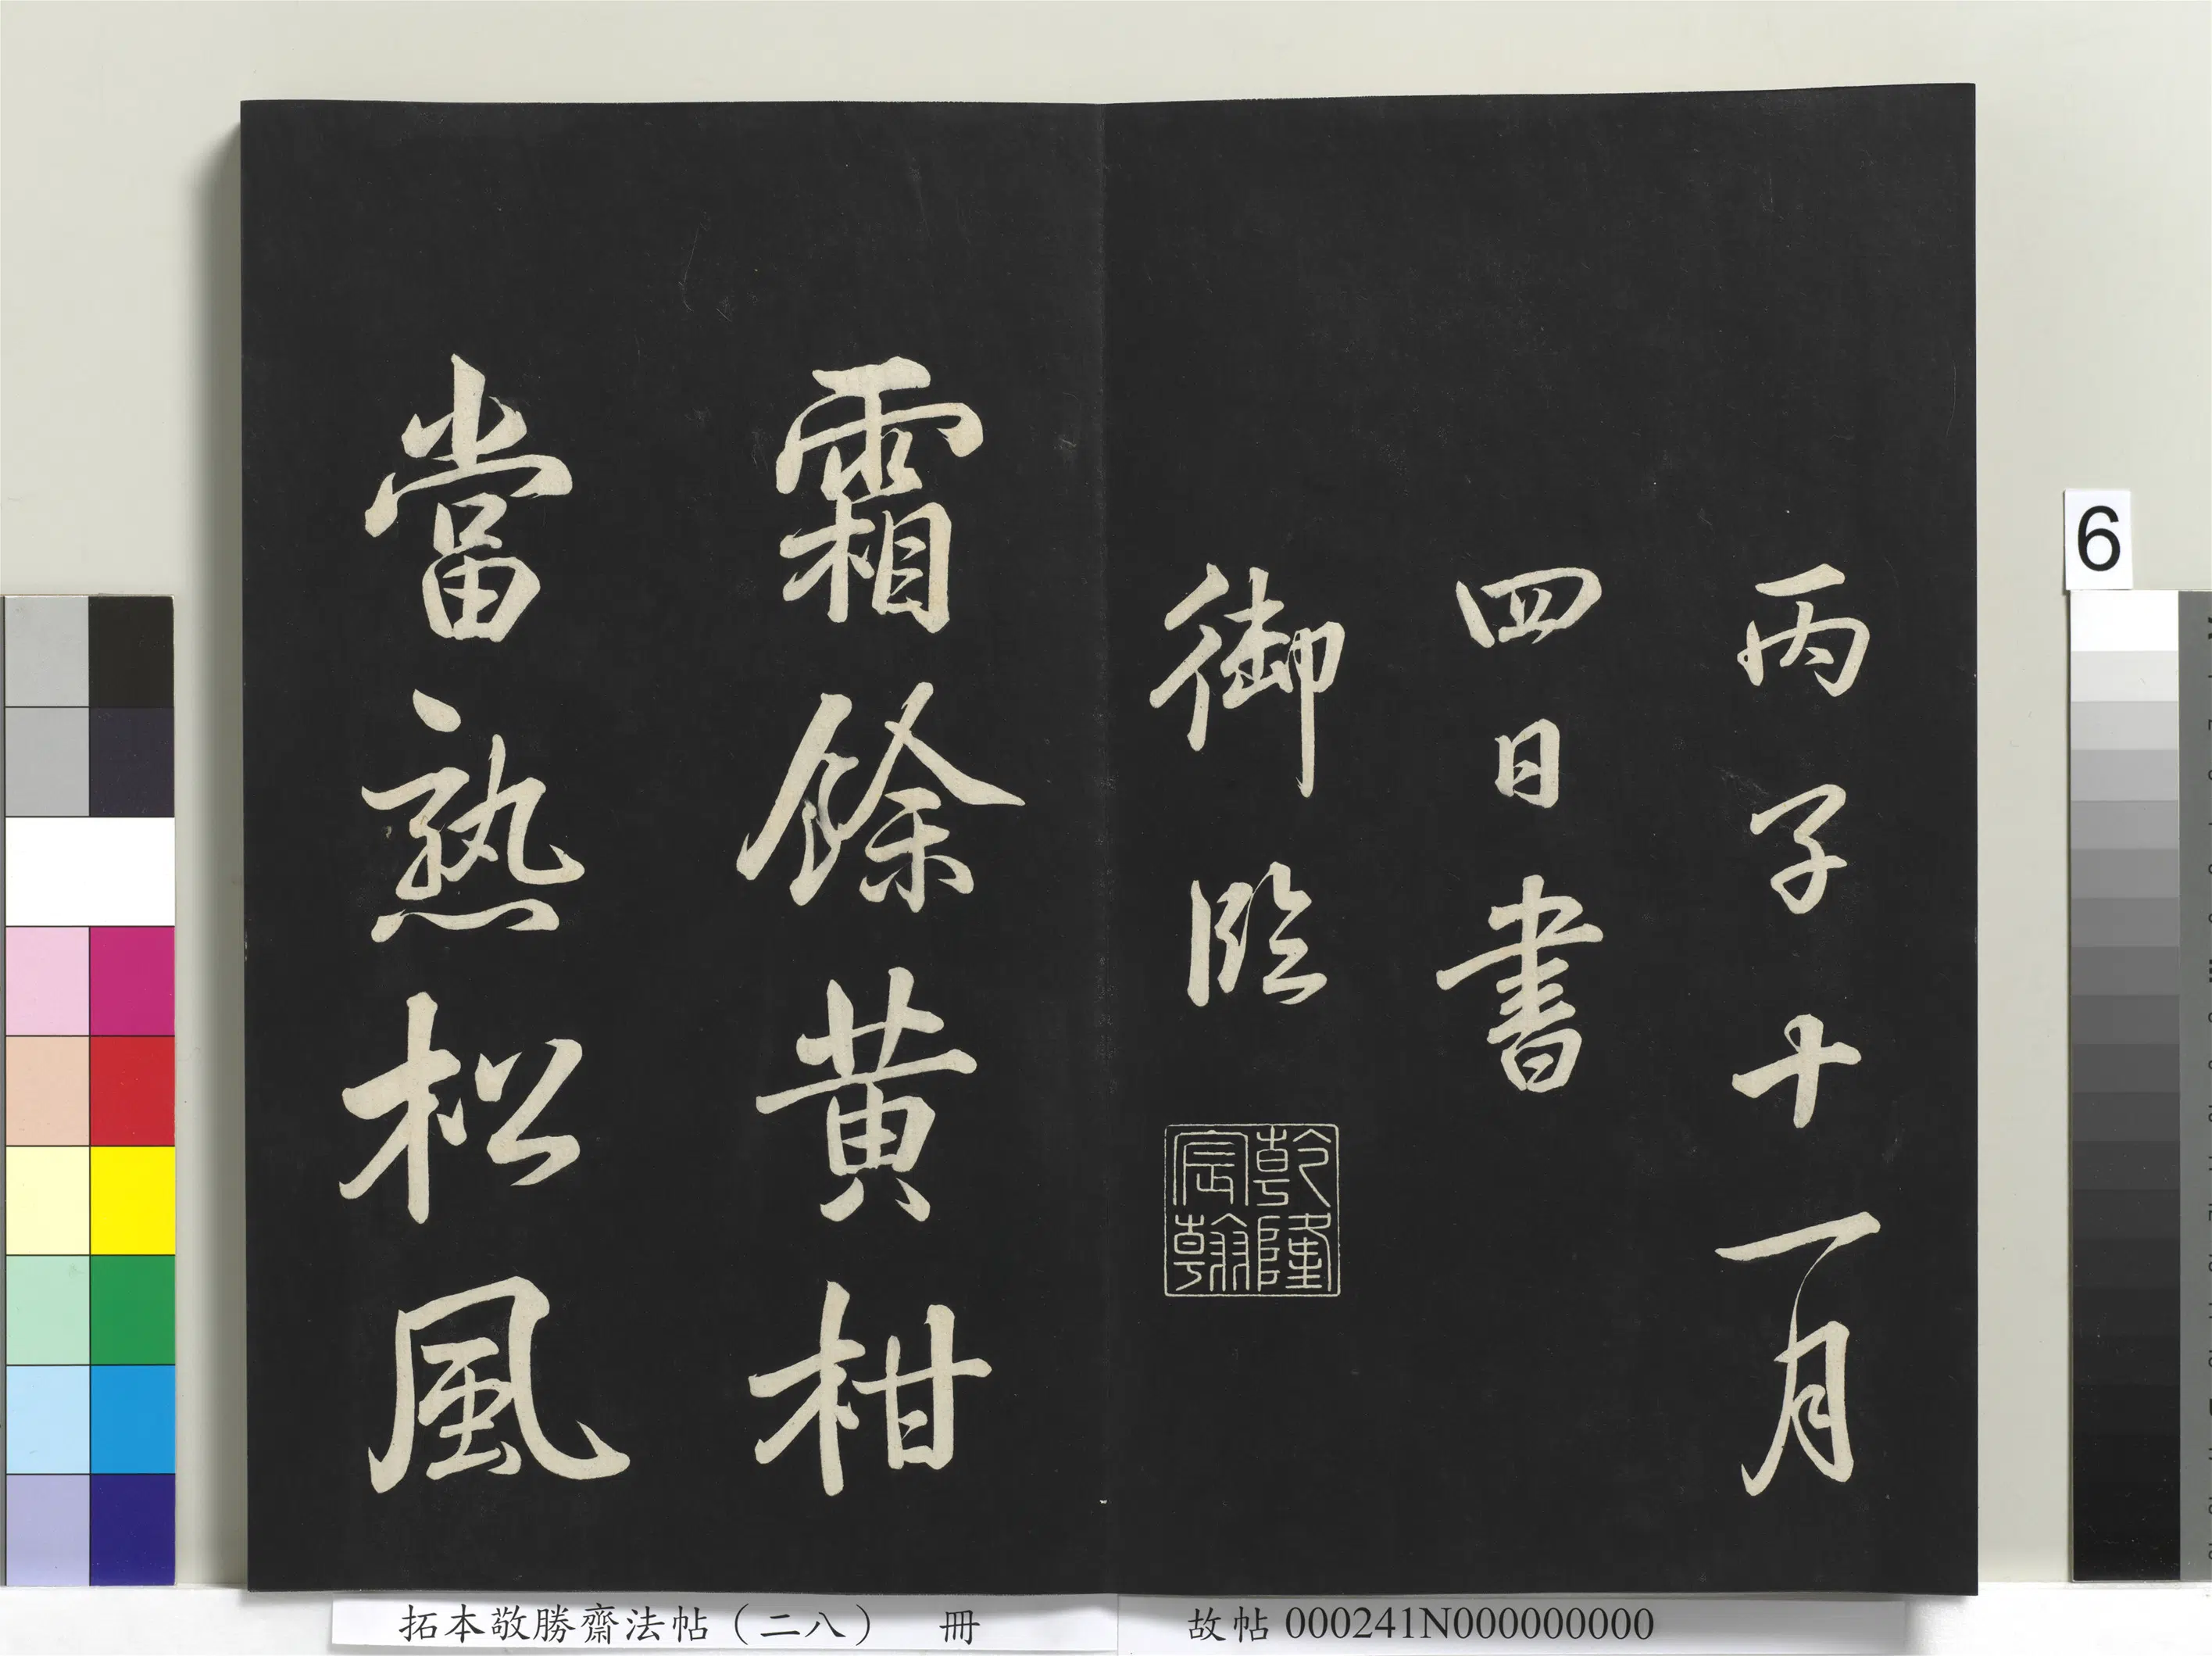 丙子十一月
四日書
御臨
乾隆
宸翰
霜餘黄柑
當熟松風
6
拓本敬勝齋法帖（二八） 冊
故帖 000241N000000000